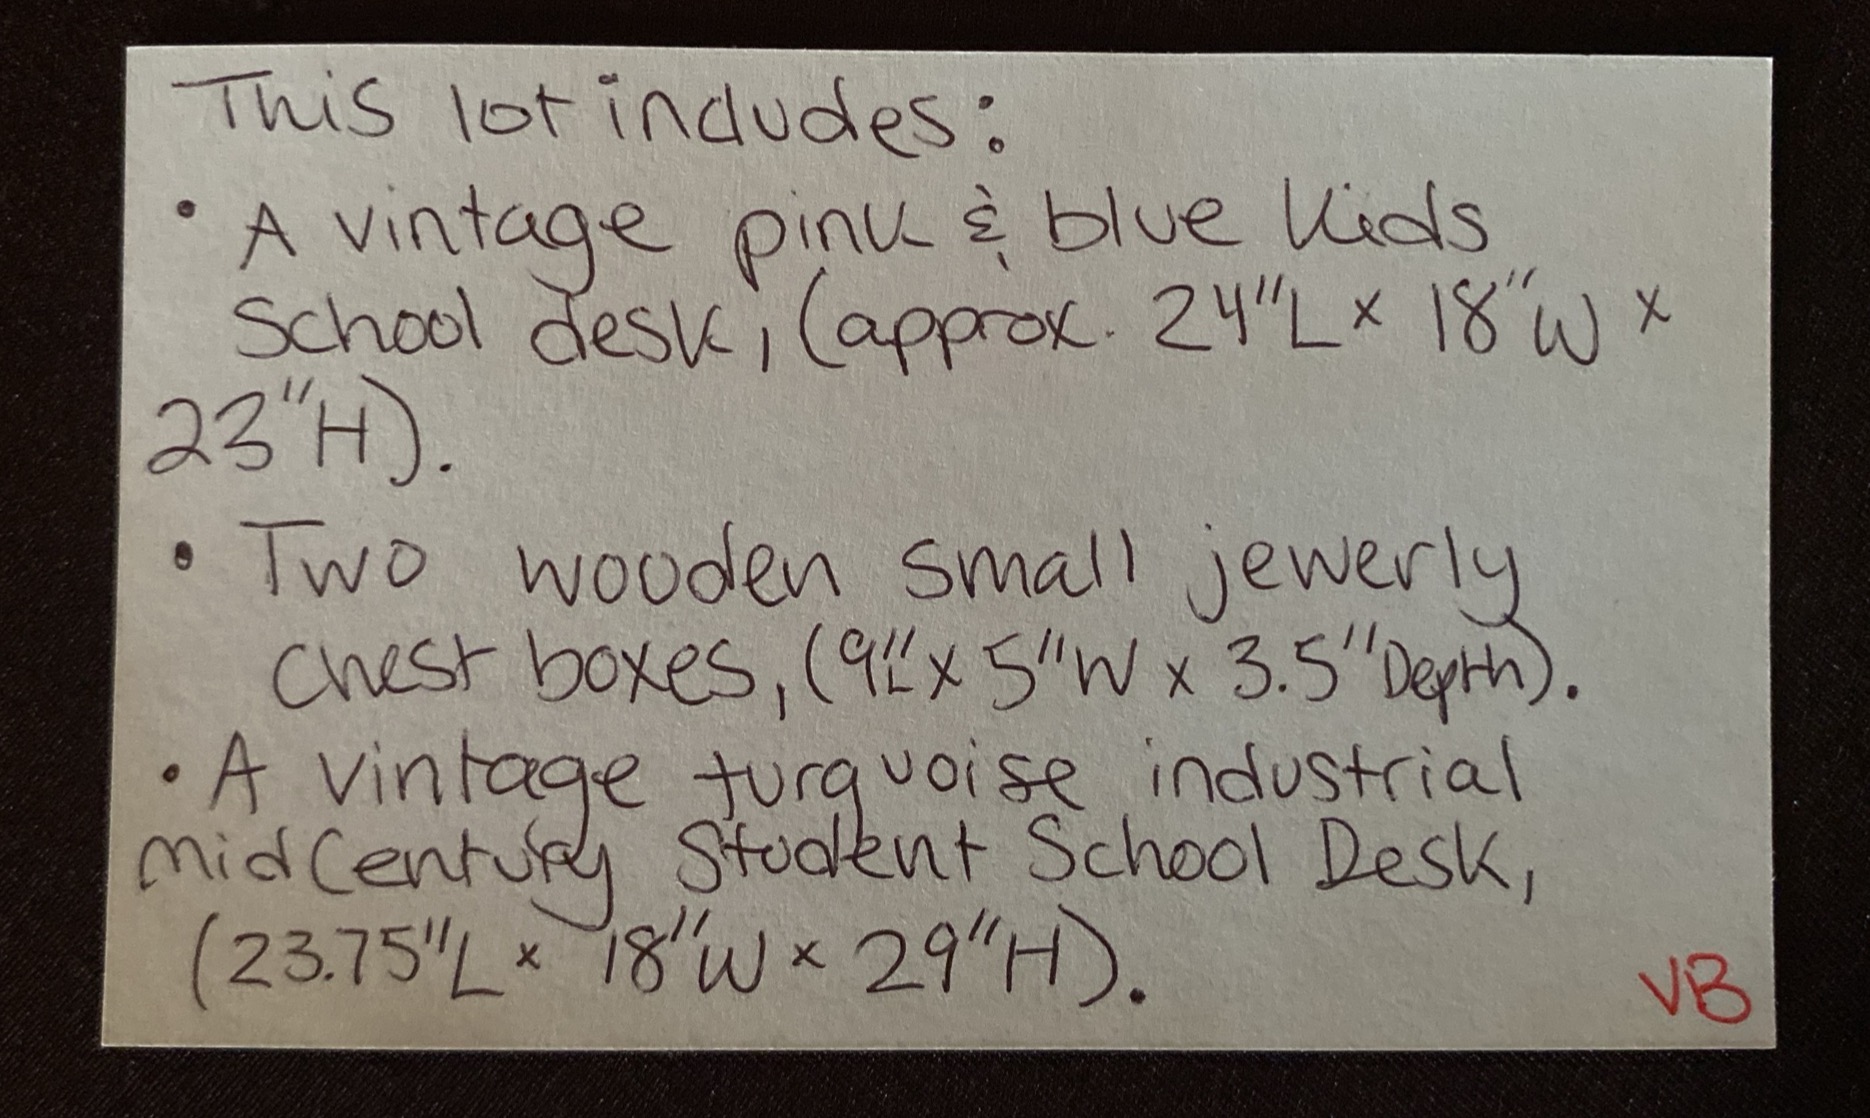 This lot includes:
• A vintage pink & blue kids
School desk, (approx. 24"L x 18"W x
23"H).
• Two wooden small jewerly
chest boxes, (9"L x 5"W x 3.5"Depth).
• A vintage turquoise industrial
midCentury Student School Desk,
(23.75"L x 18"W x 29"H).
VB